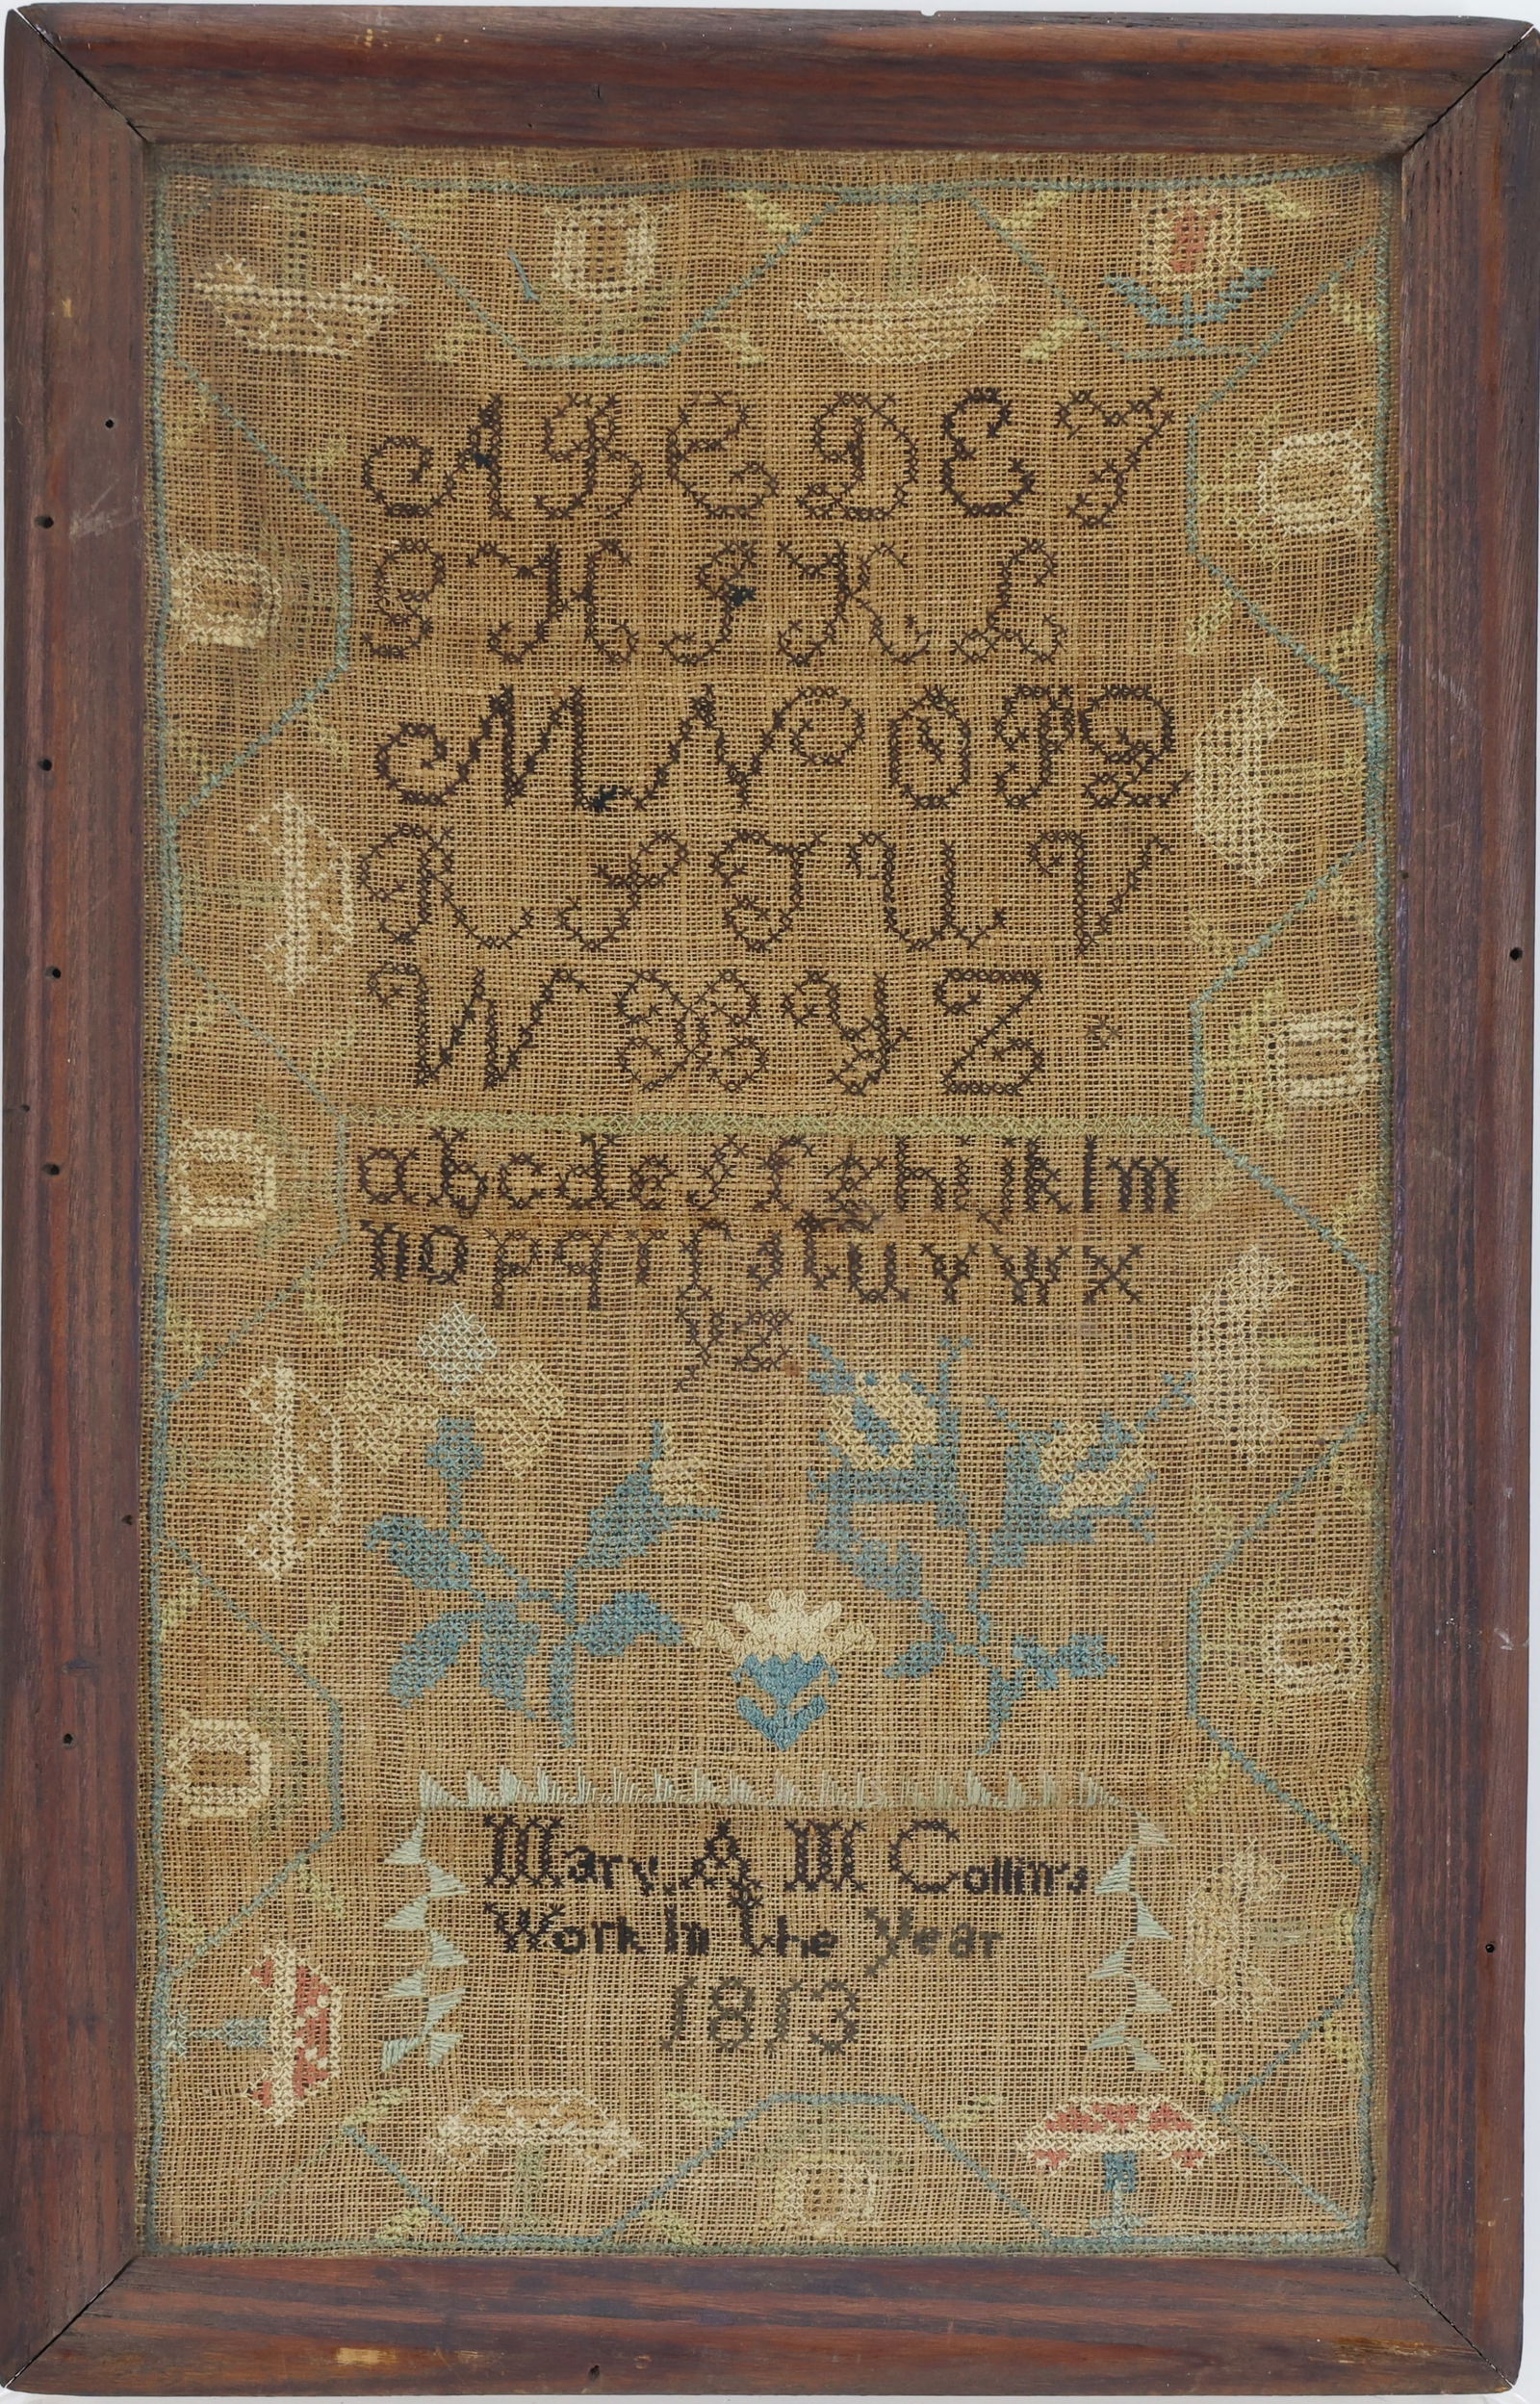 A B C D E F
G H I K L
M N O P Q
R S T U V
W X Y Z
a b c d e f f g h i j k l m
n o p q r ſ s t u v w x
y z
Mary A M Collins
Work In the Year
1813